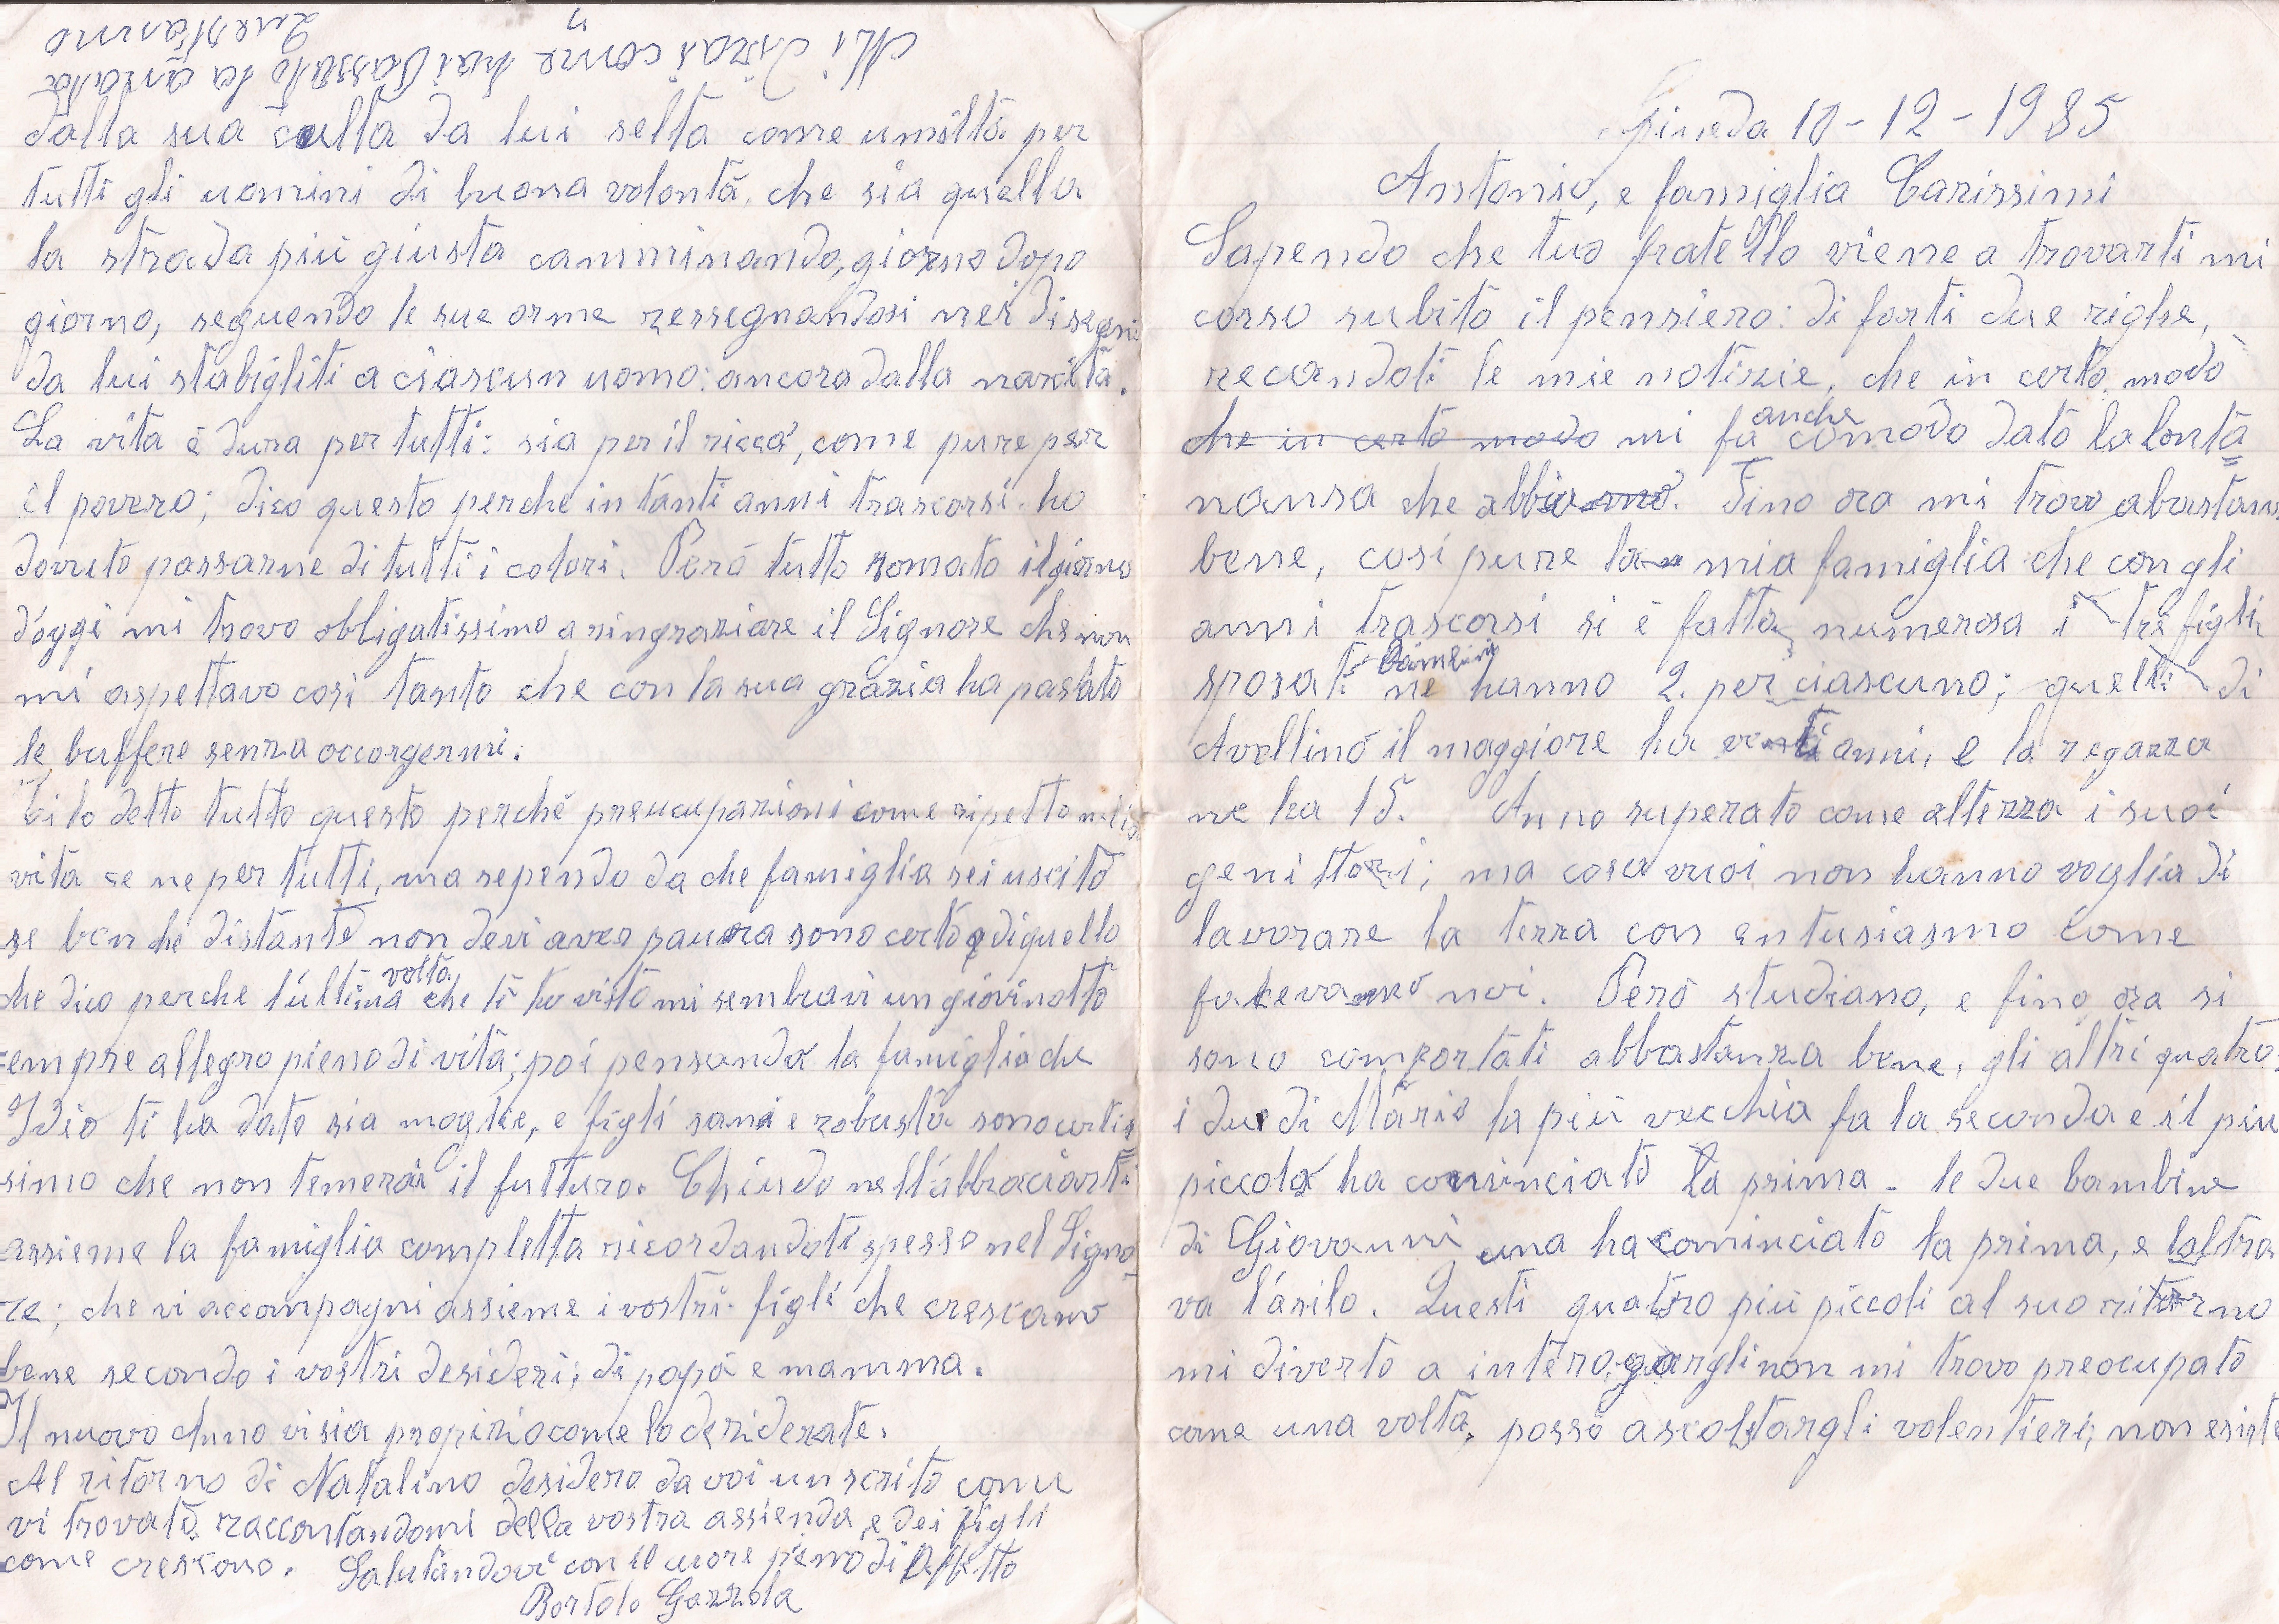 10-12-1985
Antonio, e famiglia Carissimi
Sapendo che tuo fratello viene a trovarti mi
corso subito il pensiero: di farti due righe,
recandoti le mie notizie, che in certo modo
che in certo modo mi fa anche comodo dato la lonta
nansa che abbiamo. Fino ora mi trovo abastans
bene, così pure la mia famiglia che con gli
anni trascorsi si è fatta numerosa i tre figli
sposati ne hanno Bambini 2. per ciascuno; quelli di
Avellino il maggiore ha venti anni, e la regazza
ne ha 15. Anno superato come altezza i suoi
genittori; ma cosa vuoi non hanno voglia di
lavorare la terra con entusiasmo come
facevamo noi. Però studiano, e fino ora si
sono comportati abbastanza bene, gli altri quatro:
i due di Mario la più vecchia fa la seconda e il più
piccolo ha cominciato la prima. le due bambine
di Giovanni una ha cominciato la prima, e laltra
va l'asilo. Questi quatro più piccoli al suo ritorno
mi diverto a interogargli non mi trovo preocupato
come una volta, posso ascoltargli volentieri; non esiste
dalla sua culla da lui selta come umiltà per
tutti gli uomini di buona volontà, che sia quella
la strada più giusta camminando, giorno dopo
giorno, seguendo le sue orme ressegnandosi nei disegni
da lui stabigliti a ciascun uomo: ancora dalla nascita.
La vita è dura per tutti: sia per il ricco, come pure per
il povero; dico questo perche in tanti anni trascorsi ho
dovuto passarne di tutti i colori. Però tutto somato il giorno
d'oggi mi trovo obbligatissimo a ringraziare il Signore che non
mi aspettavo così tanto che con la sua grazia ha passato
le buffere senza occorgermi.
Ti ho detto tutto questo perchè preucupazioni come ripetto
vita ce ne per tutti, ma sapendo da che famiglia sei uscito
se ben che distante non devi aver paura sono certo di quello
che dico perche l'ultima volta che ti ho visto mi sembravi un giovinotto
sempre allegro pieno di vita; poi pensando la famiglia che
Idio ti ha dato sia moglie, e figli sani e robusti sono certis
simo che non temerai il futturo. Chiudo nell'abbraciarti
assieme la famiglia completta ricordandoti spesso nel Signo
re; che vi accompagni assieme i vostri figli che crescano
bene secondo i vostri desideri; di papà e mamma.
Il nuovo Anno vi sia propizio come lo desiderate.
Al ritorno di Natalino desidero da voi un scrito come
vi trovate raccontandomi della vostra assienda e dei figli
come crescono. Salutandovi con il cuore pieno di Affetto
Bortolo Gazzola
Mi dirai come hai passato la anata
Quest'anno